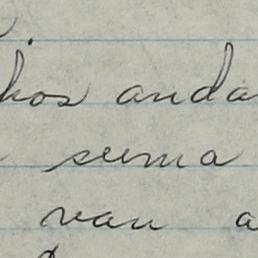 kos anda
suma
van a